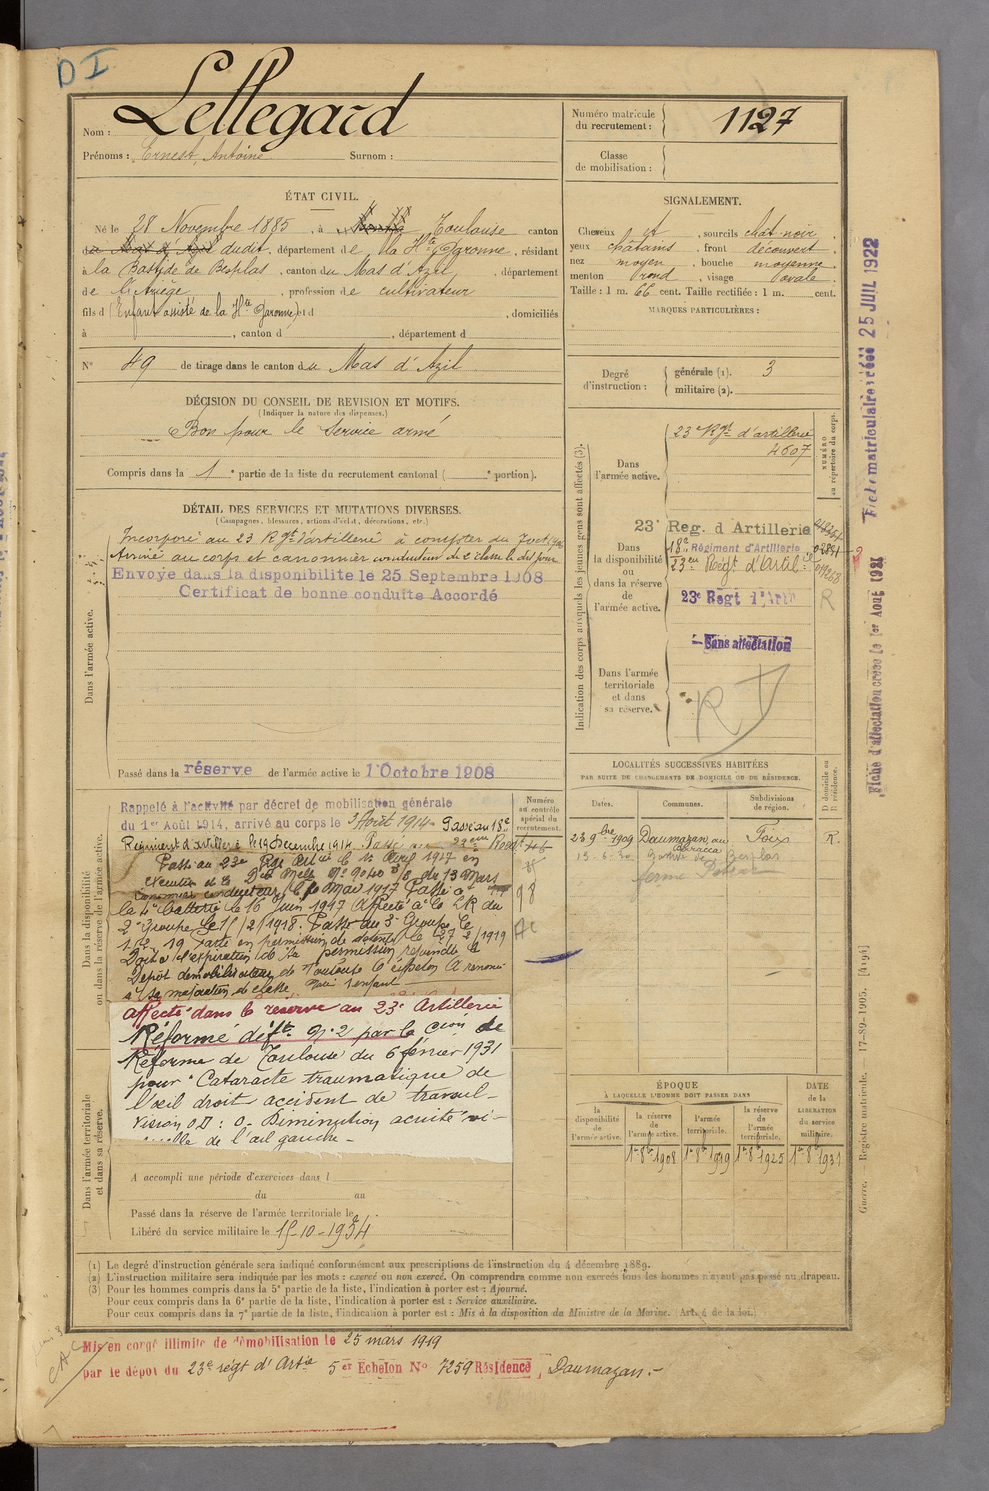 D I
Lellegard
Nom :
Prénoms : Ernest, Antoine Surnom :
Numéro matricule du recrutement : 1127
Classe de mobilisation :
ÉTAT CIVIL.
Né le 28 Novembre 1885, à Toulouse canton
dudit, département de la Hte Garonne, résidant
à la Bastide de Besplas, canton du Mas d'Azil, département
de l'Ariège, profession de cultivateur
fils d (Enfant assisté de la Hte Garonne) et d , domiciliés
à , canton d , département d
N° 49 de tirage dans le canton du Mas d'Azil
DÉCISION DU CONSEIL DE REVISION ET MOTIFS.
(Indiquer la nature des dispenses.)
Bon pour le service armé
Compris dans la 1 e partie de la liste du recrutement cantonal ( e portion).
DÉTAIL DES SERVICES ET MUTATIONS DIVERSES.
(Campagnes, blessures, actions d'éclat, décorations, etc.)
Incorporé au 23 Rgt d'artillerie à compter du 7 oct
Arrivé au corps et canonnier conducteur de 2e classe le dit jour
Envoyé dans la disponibilité le 25 Septembre 1908
Certificat de bonne conduite Accordé
Dans l'armée active.
Passé dans la réserve de l'armée active le 1 Octobre 1908
SIGNALEMENT.
Cheveux et, sourcils chât-noir
yeux chatains, front découvert
nez moyen, bouche moyenne
menton rond, visage ovale
Taille : 1 m. 66 cent. Taille rectifiée : 1 m. cent.
MARQUES PARTICULIÈRES :
Degré d'instruction : générale (1). 3
militaire (2).
Indication des corps auxquels les jeunes gens sont affectés (3).
NUMÉRO au répertoire du corps.
Dans l'armée active.
23e Rgt d'artillerie
4607
Dans la disponibilité ou dans la réserve de l'armée active.
23e Reg. d Artillerie
18e Régiment d'Artillerie
23e Régt d'Artil
23e Regt d'Art
R
Sans affectation
Dans l'armée territoriale et dans sa réserve.
LOCALITÉS SUCCESSIVES HABITÉES
PAR SUITE DE CHANGEMENTS DE DOMICILE OU DE RÉSIDENCE.
Dates. Communes. Subdivisions de région. D domicile ou R résidence.
23 9bre 1909 Daumazan, au Foix R.
Dans la disponibilité ou dans la réserve de l'armée active.
Numéro au contrôle spécial du recrutement.
Rappelé à l'activité par décret de mobilisation générale
du 1er Août 1914, arrivé au corps le 3 Août 1914. Passé au 18e
Régiment d'artillerie le 19 décembre 1914. Passé au
Passé au 23e Rgt Art le 1er Avril 1917 en
exécution de la
le 16 Juin 1917 Affecté à la 2R du
2e Groupe le 15/2/1918. Passé au 3e Groupe le
Parti en permission de le 27/2/1919
Doit à l'expiration de sa permission rejoindre le
Dépôt démobilisateur de Toulouse 5e échelon A renoncé
à sa majoration de classe Marié 1 enfant
Affecté dans la réserve au 23e Artillerie
Réformé déf. n° 2 par la Con de
Réforme de Toulouse du 6 février 1931
pour "Cataracte traumatique de
l'œil droit accident de travail-
Vision OD : 0. Diminution acuité vi-
suelle de l'œil gauche -
Dans l'armée territoriale et dans sa réserve.
A accompli une période d'exercices dans l
du au
Passé dans la réserve de l'armée territoriale le
Libéré du service militaire le 15-10-1934
ÉPOQUE
À LAQUELLE L'HOMME DOIT PASSER DANS
la disponibilité de l'armée active. la réserve de l'armée active. l'armée territoriale. la réserve de l'armée territoriale.
DATE de la LIBÉRATION du service militaire.
1er 8bre 1908 1er 8bre 1919 1er 8bre 1925 1er 8bre 1931
(1) Le degré d'instruction générale sera indiqué conformément aux prescriptions de l'instruction du 4 décembre 1889.
(2) L'instruction militaire sera indiquée par les mots : exercé ou non exercé. On comprendra comme non exercés tous les hommes n'ayant pas passé au drapeau.
(3) Pour les hommes compris dans la 5e partie de la liste, l'indication à porter est : Ajourné.
Pour ceux compris dans la 6e partie de la liste, l'indication à porter est : Service auxiliaire.
Pour ceux compris dans la 7e partie de la liste, l'indication à porter est : Mis à la disposition du Ministre de la Marine. (Art. 4 de la loi.)
Mis en congé illimité de démobilisation le 25 mars 1919
par le dépôt du 23e régt d'Artie 5e Echelon N° 7259 Résidence Daumazan.-
Fiche matriculaire créée 25 JUIL 1922
Fiche d'affectation créée le 1er Août 1921
Guerre. Registre matricule. 17-89-1905. [4194]